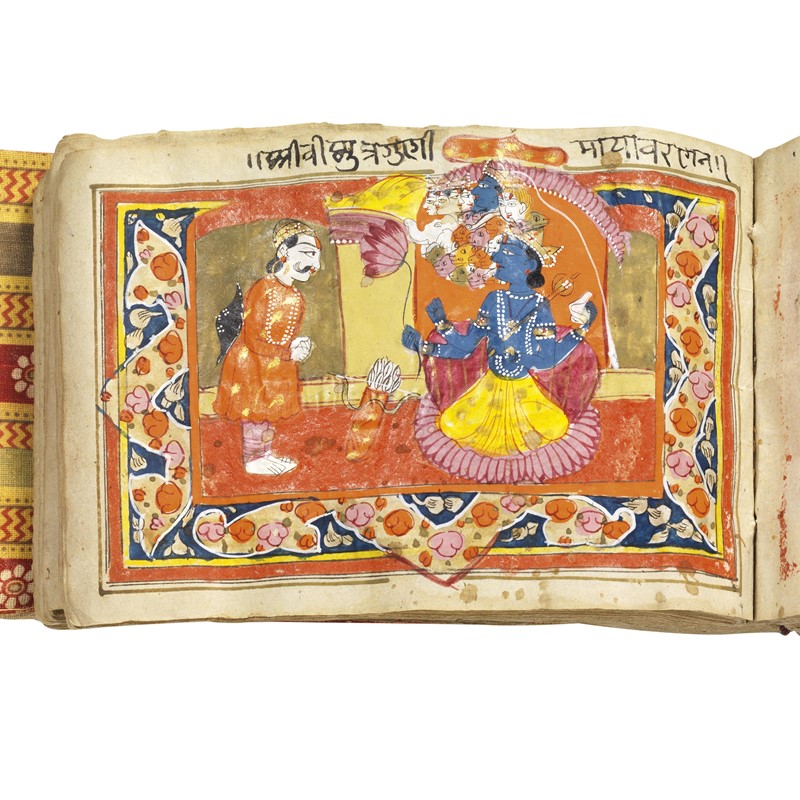 ॥श्रीवीष्णुत्रगुणी मायावरणन॥